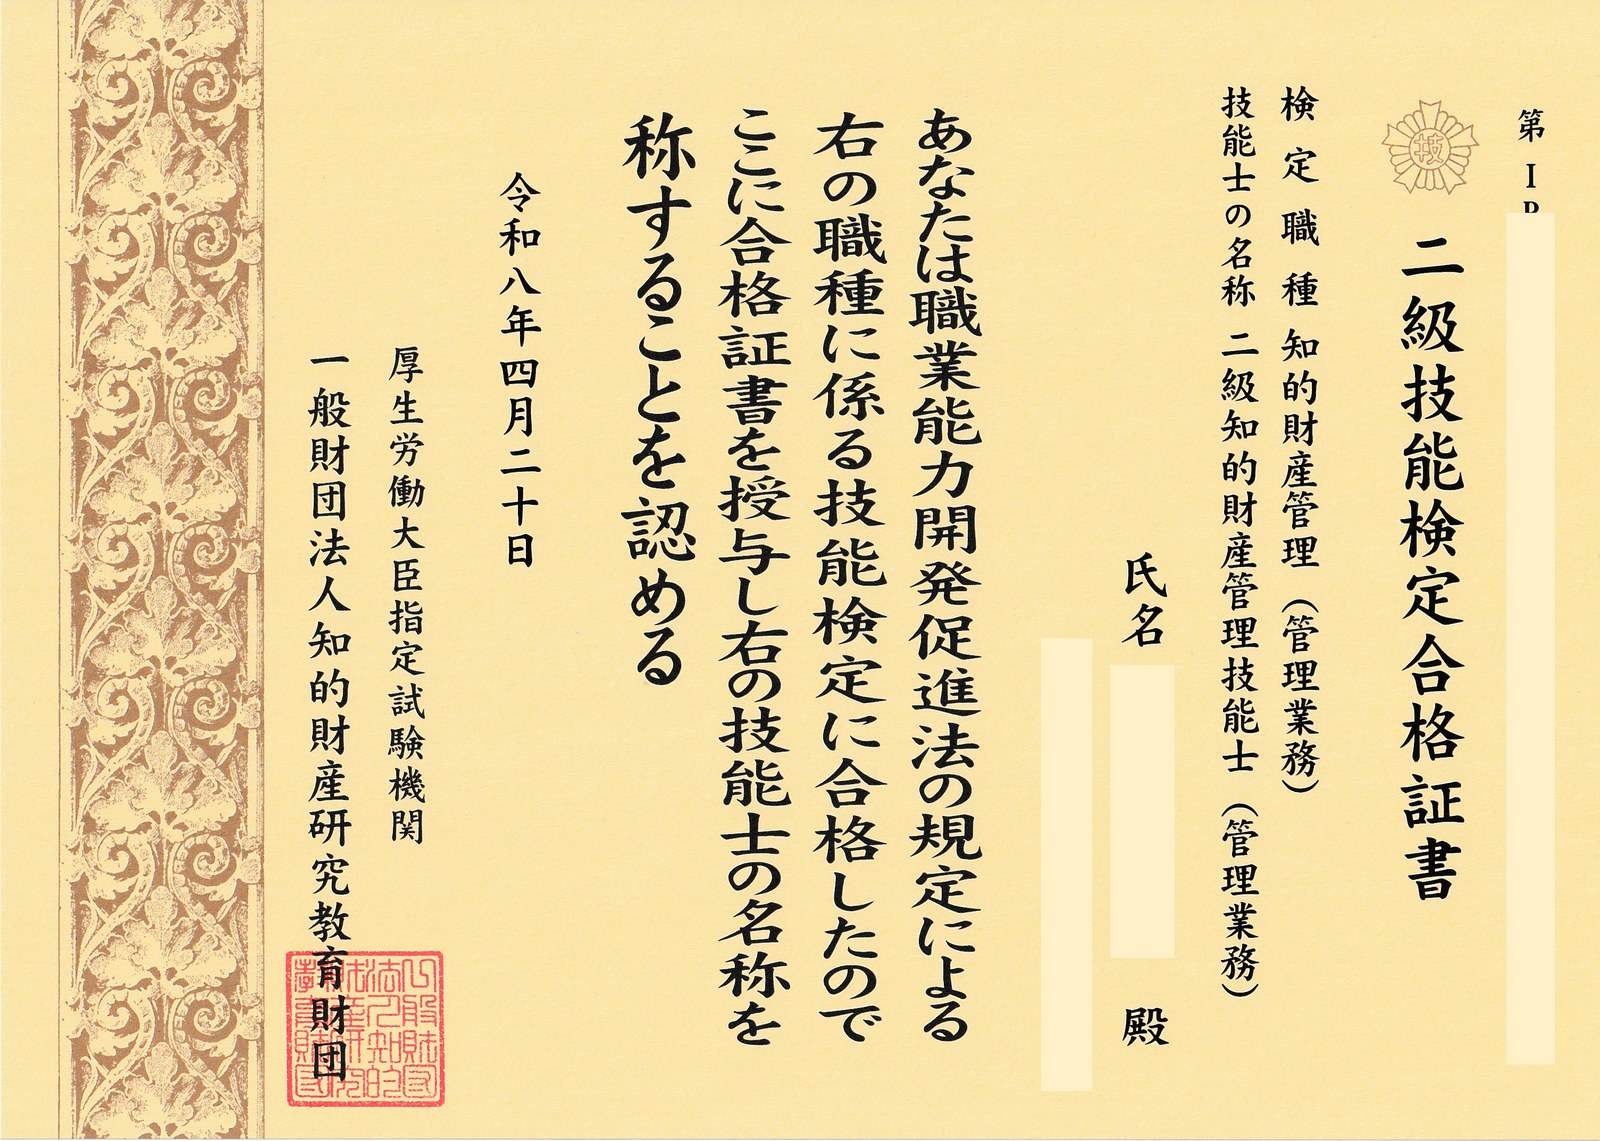 第 IP
技
二級技能検定合格証書
検定職種 知的財産管理（管理業務）
技能士の名称 二級知的財産管理技能士（管理業務）
氏名 殿
あなたは職業能力開発促進法の規定による
右の職種に係る技能検定に合格したので
ここに合格証書を授与し右の技能士の名称を
称することを認める
令和八年四月二十日
厚生労働大臣指定試験機関
一般財団法人知的財産研究教育財団